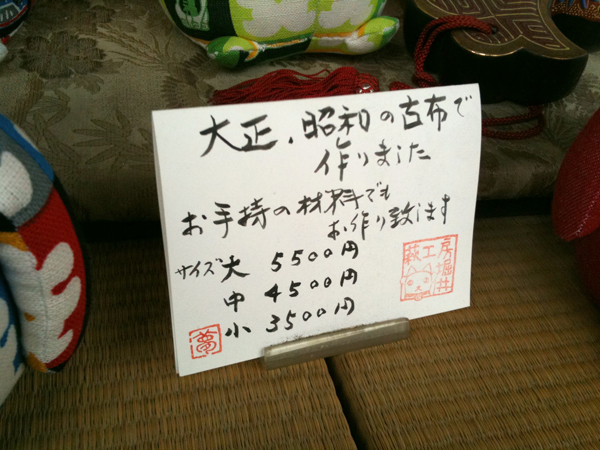 大正、昭和の古布で
作りました
お手持の材料でも
お作り致します
サイズ 大 5500円
中 4500円
小 3500円
萩工房
堀井
夢